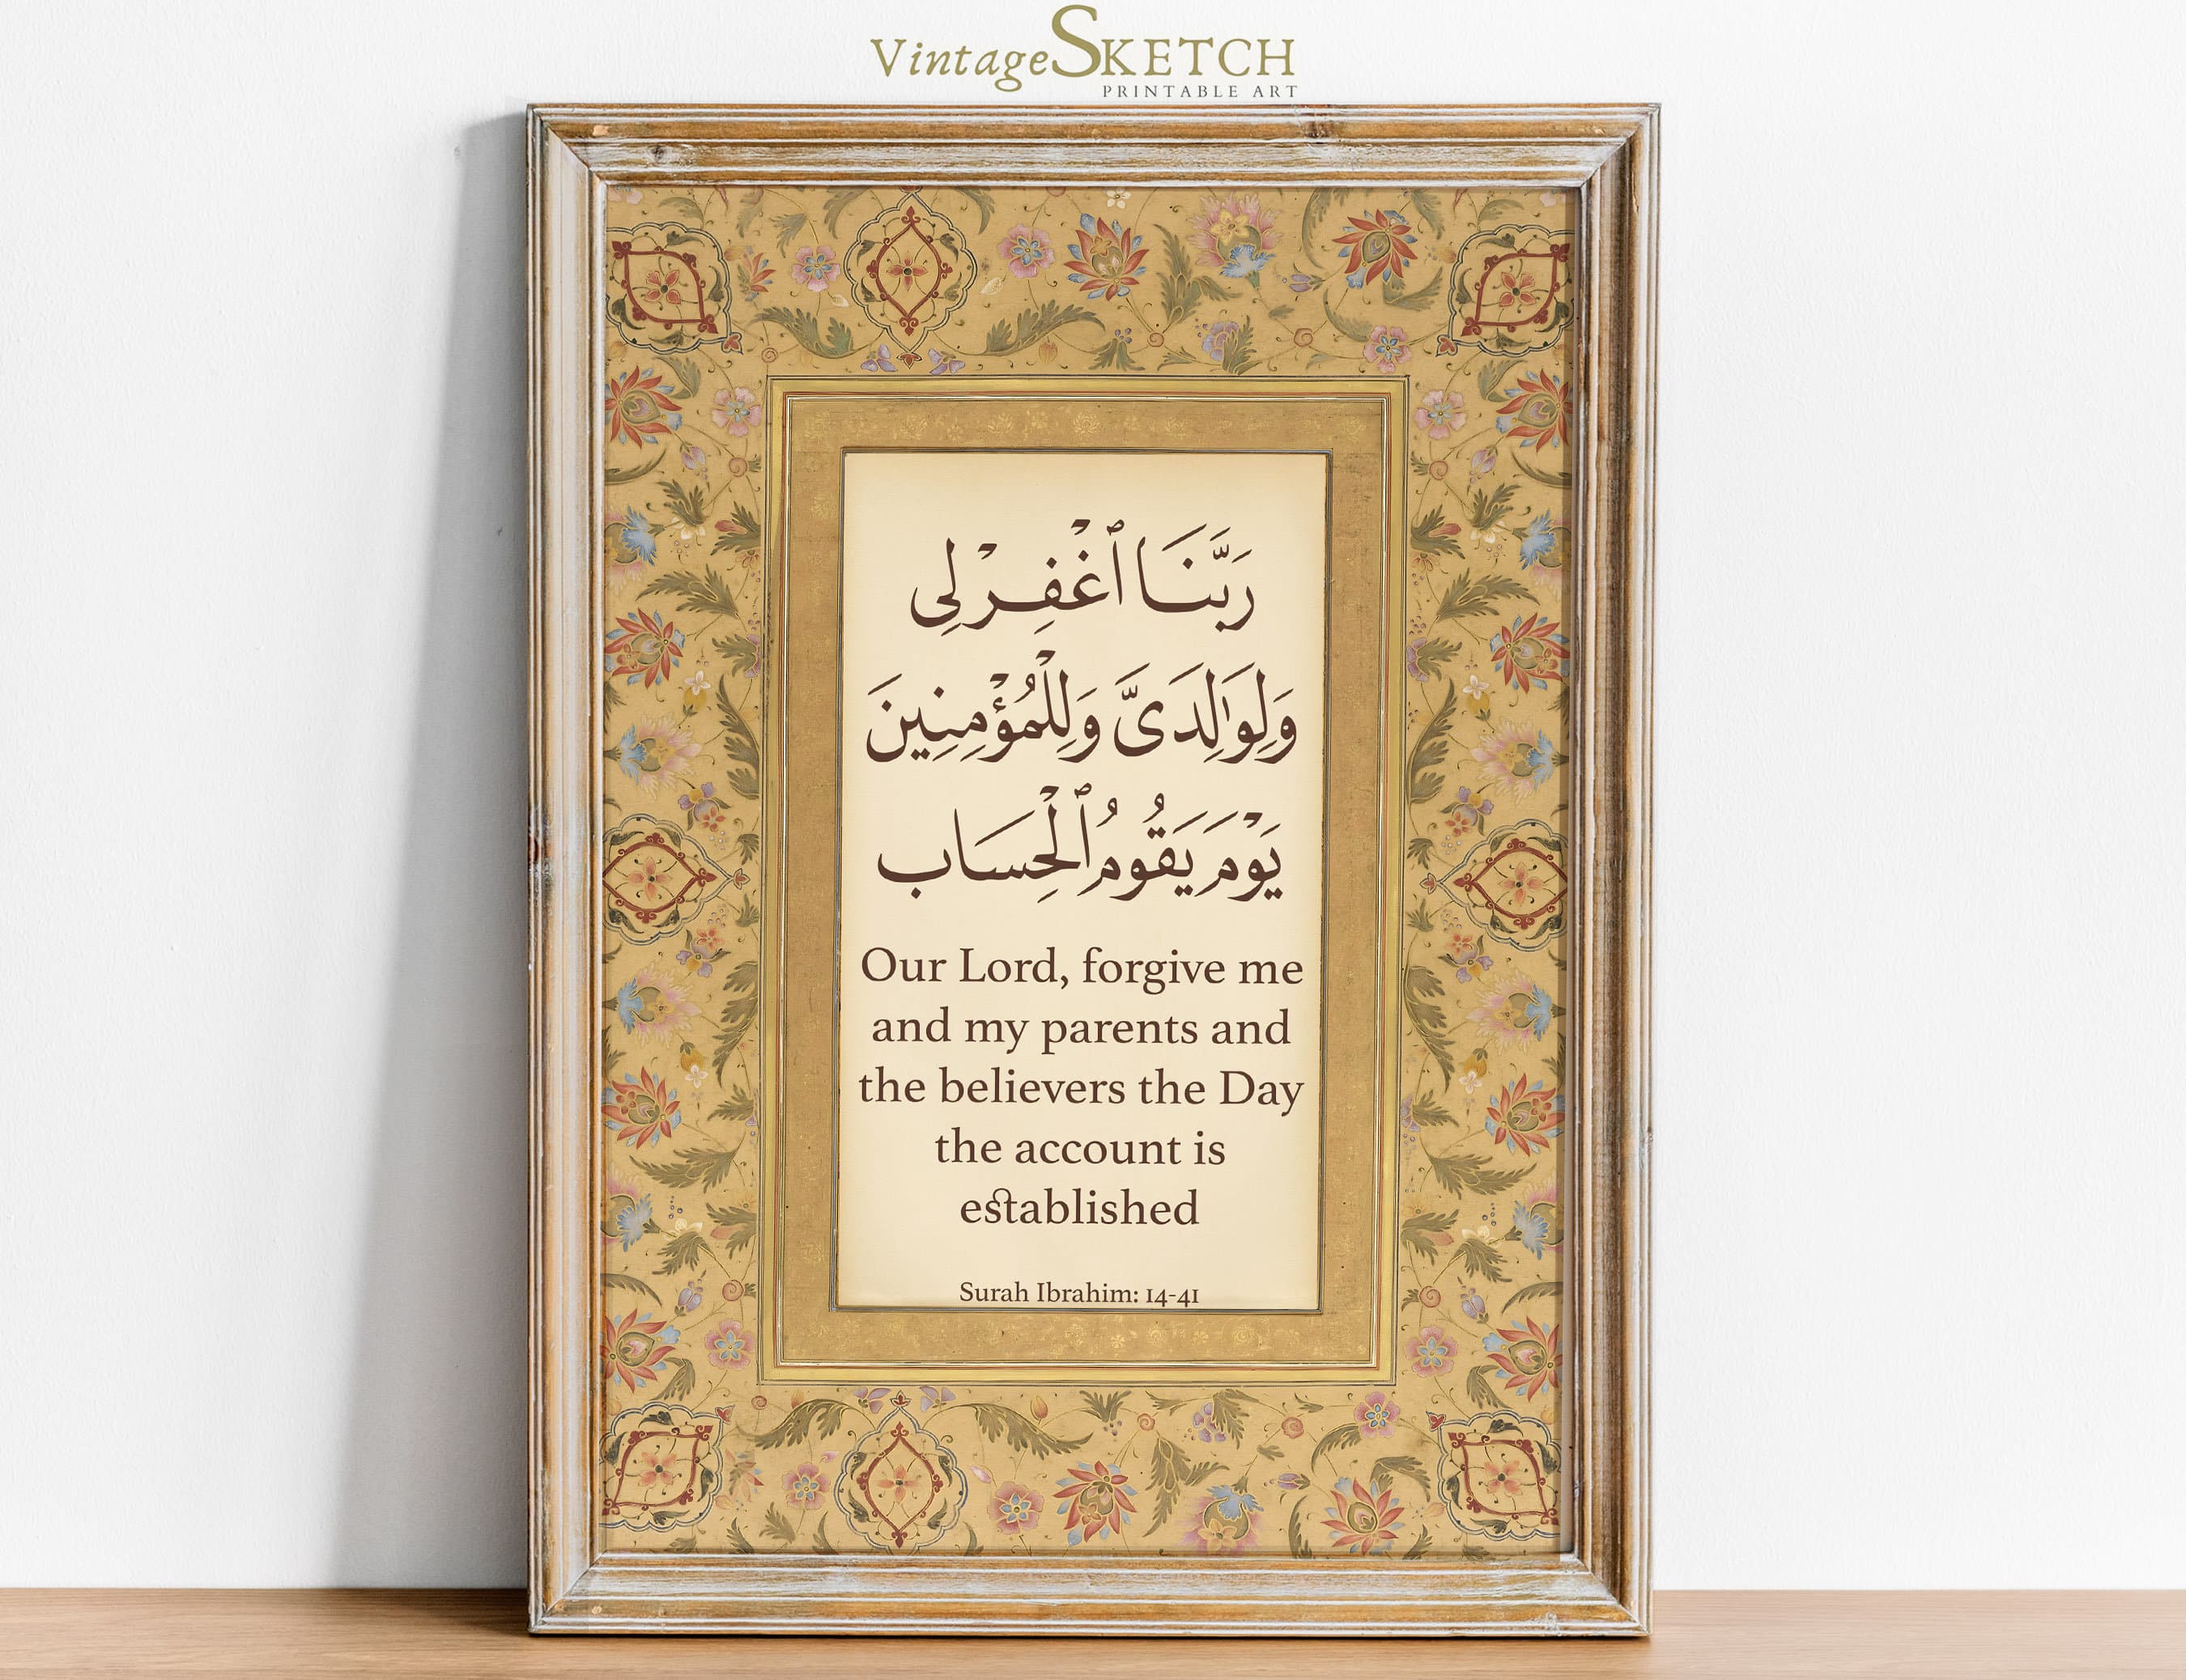 VintageSKETCH
PRINTABLE ART
رَبَّنَا ٱغْفِرْ لِى
وَلِوَٰلِدَىَّ وَلِلْمُؤْمِنِينَ
يَوْمَ يَقُومُ ٱلْحِسَاب
Our Lord, forgive me
and my parents and
the believers the Day
the account is
established
Surah Ibrahim: 14-41